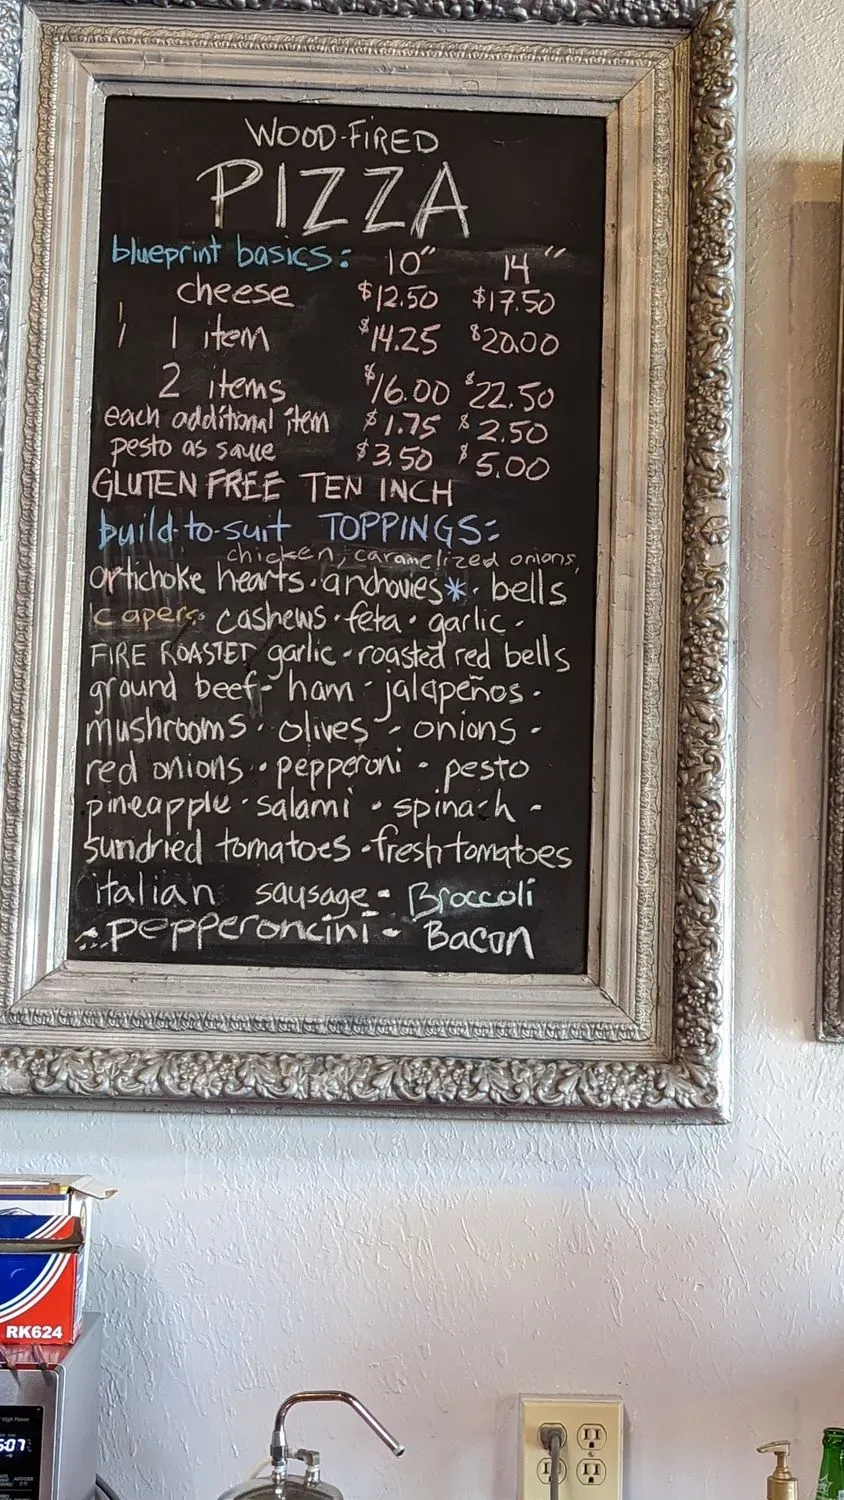 WOOD-FIRED
PIZZA
blueprint basics: 10" 14"
cheese $12.50 $17.50
1 item $14.25 $20.00
2 items $16.00 $22.50
each additional item $1.75 $2.50
pesto as sauce $3.50 $5.00
GLUTEN FREE TEN INCH
build-to-suit TOPPINGS:
chicken, caramelized onions,
artichoke hearts · anchovies* · bells
capers · cashews · feta · garlic ·
FIRE ROASTED garlic · roasted red bells
ground beef - ham · jalapeños ·
mushrooms · olives · onions ·
red onions · pepperoni · pesto
pineapple · salami · spinach ·
sundried tomatoes · fresh tomatoes
italian sausage - Broccoli
- pepperoncini - Bacon
RK624
High Power